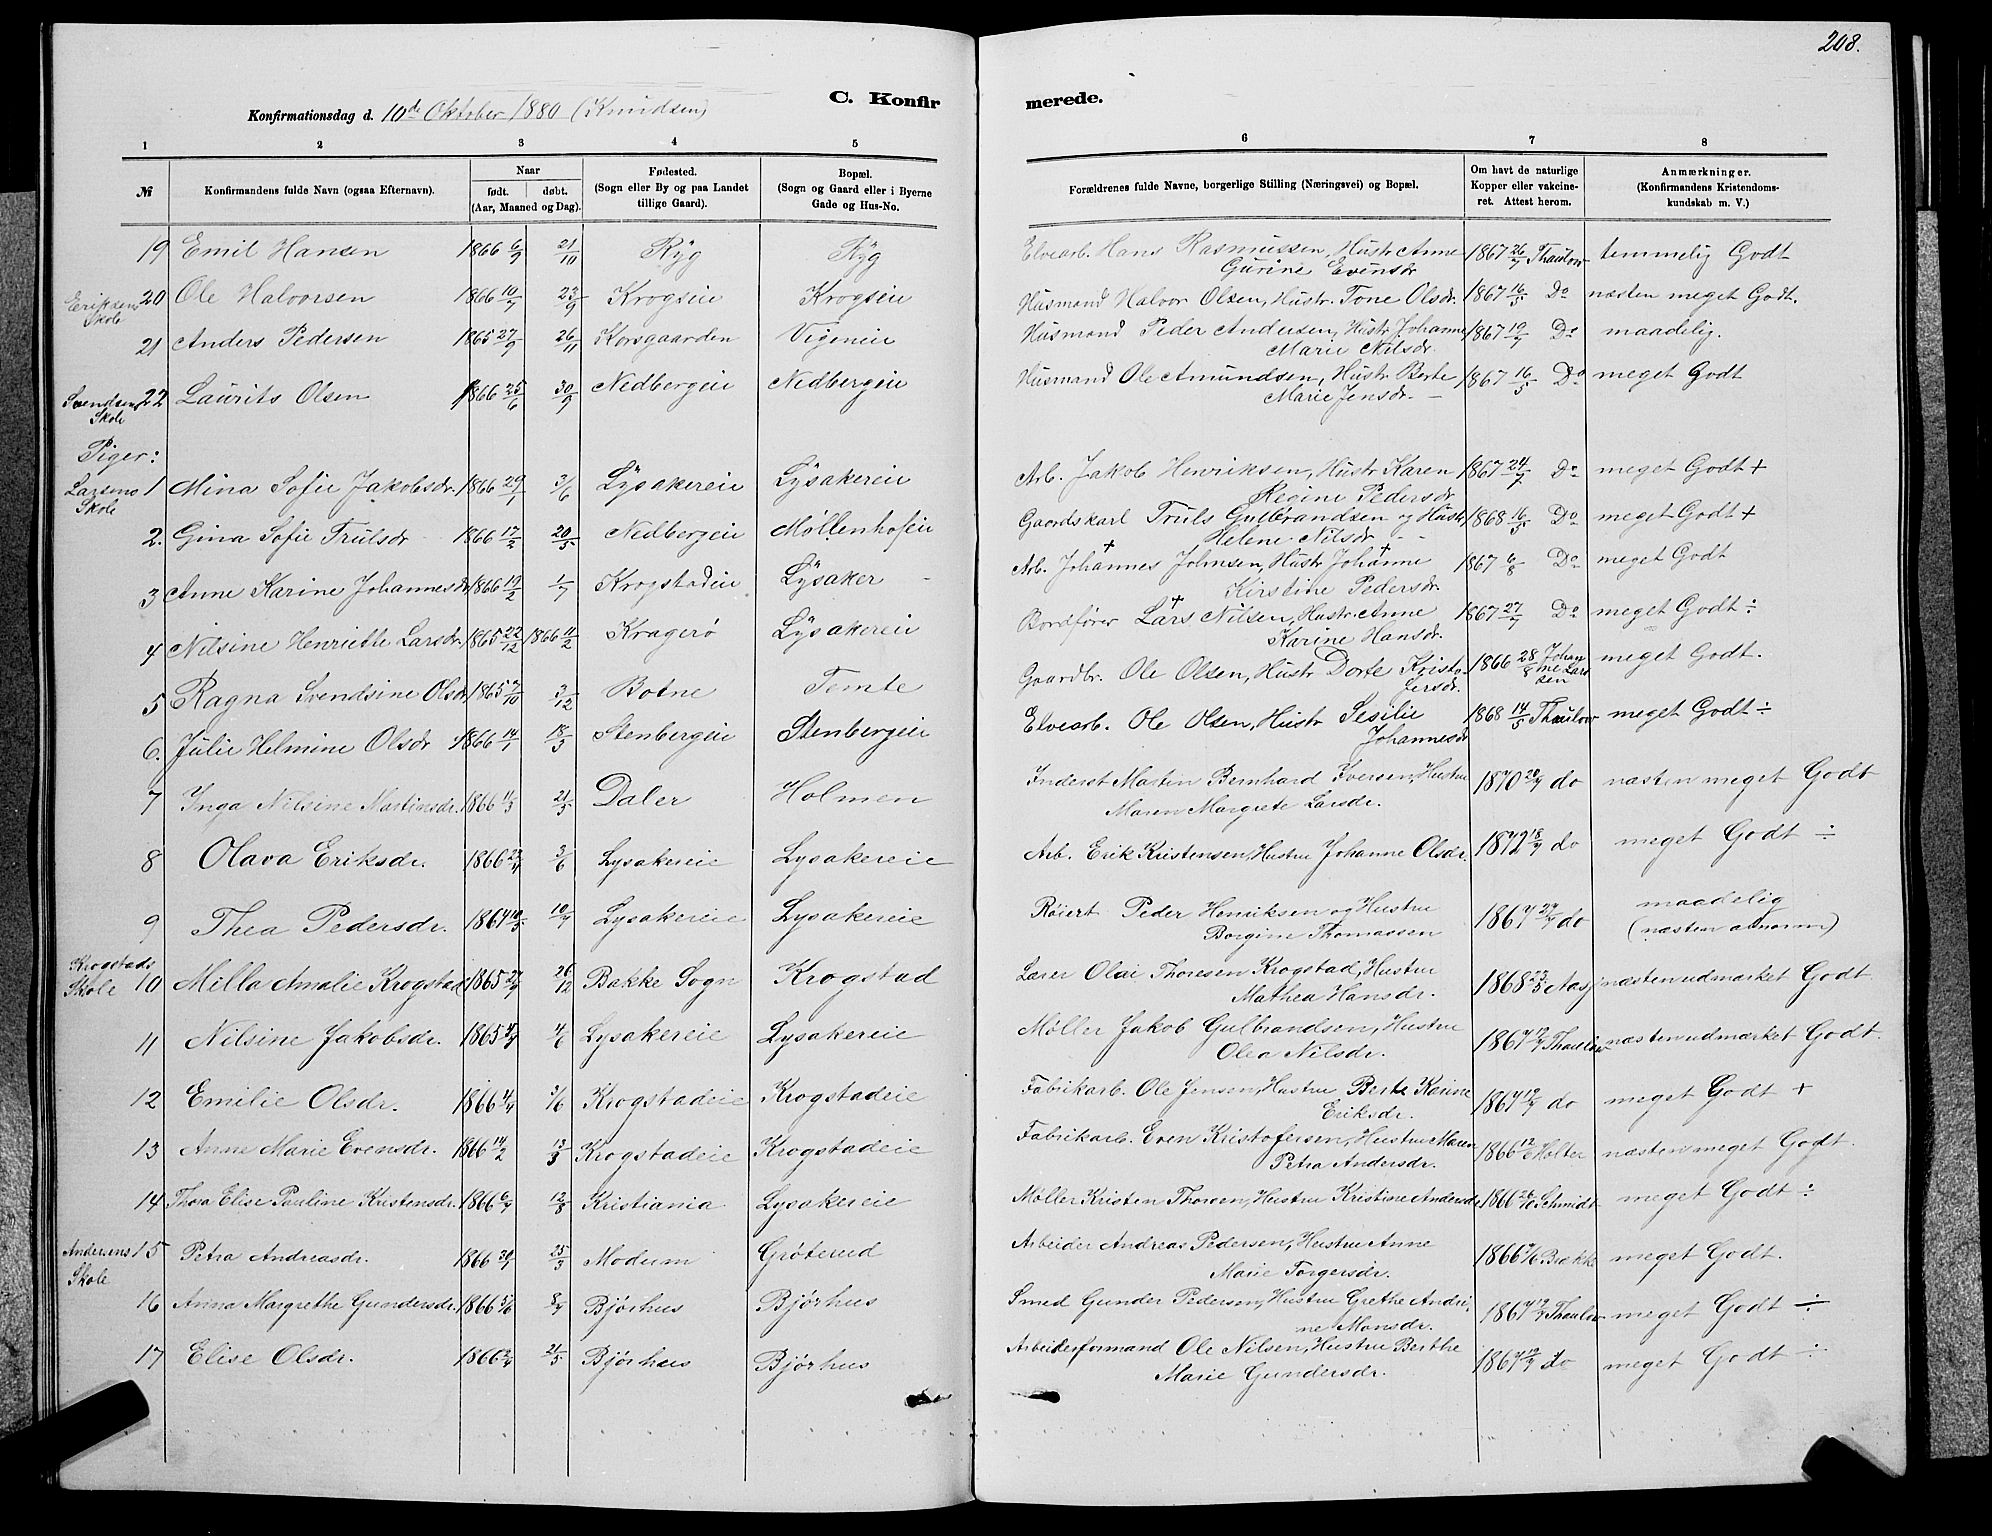 208.
C. Konfirmerede.
Konfirmationsdag d. 10de Oktober 1880 (Knudsen)
1 2 3 4 5 6 7 8
№ Konfirmandens fulde Navn (ogsaa Efternavn). Naar født. døbt. (Aar, Maaned og Dag). Fødested. (Sogn eller By og paa Landet tillige Gaard). Bopæl. (Sogn og Gaard eller i Byerne Gade og Hus-No. Forældrenes fulde Navne, borgerlige Stilling (Næringsvei) og Bopæl. Om havt de naturlige Kopper eller vakcineret. Attest herom. Anmærkninger. (Konfirmandens Kristendomskundskab m. V.)
19 Emil Hansen 1866 6/9 21/10 Ryg Ryg Elvearb. Hans Rasmussen, Hustr Anne Gurine Evensdr 1867 26/7 Thaulow temmelig Godt
Eriksens Skole 20 Ole Halvorsen 1866 10/7 23/9 Krogseie Krogseie Husmand Halvor Olsen, Hustr. Tone Olsdr. 1867 16/5 Do næsten meget Godt.
21 Anders Pedersen 1865 27/9 26/11 Korsgaarden Vigeneie Husmand Peder Andersen, Hustr Johanne Marie Nilsdr. 1867 19/7 Do maadelig.
Svendsens Skole 22 Laurits Olsen 1866 25/6 30/9 Nedbergeie Nedbergeie Husmand Ole Amundsen, Hustr Berte Marie Jensdr. 1867 16/5 Do meget Godt
Piger:
Larsens Skole 1 Mina Sofie Jakobsdr. 1866 29/1 3/6 Lysakereie Lysakereie Arb. Jakob Henriksen, Hustr Karen Regine Pedersdr 1867 24/7 Do meget Godt +
2. Gina Sofie Trulsdr 1866 17/2 20/5 Nedbergeie Møllenhofeie Gaardskarl Truls Gulbrandsen og Hustr Helene Nilsdr 1868 16/5 Do meget Godt +
3 Anne Karine Johannesdr 1866 19/2 1/7 Krogstadeie Lysaker Arb. Johannes Johnsen, Hustr Johanne Kirstine Pedersdr. 1867 6/8 Do meget Godt
4 Nilsine Henriette Larsdr. 1865 22/12 1866 11/2 Kragerø Lysakereie Bordfører Lars Nilsen, Hustr. Anne Karine Hansdr. 1867 27/7 Do meget Godt ÷
5 Ragna Svendsine Olsdr 1865 7/10 3/12 Botne Temte Gaardbr. Ole Olsen, Hustr Dorte Kristofersdr. 1866 28/8 Johanne Larssen meget Godt.
6. Julie Helmine Olsdr 1866 14/1 18/3 Stenbergeie Stenbergeie Elvearb. Ole Olsen, Hustr Sesilie Johannesdr 1868 14/5 Thaulow meget Godt ÷
7 Inga Nilsine Martinsdr. 1866 11/3 21/5 Daler Holmen Inderst Martin Bernhard Iversen, Hustru Maren Margrete Larsdr. 1870 20/7 do næsten meget Godt
8 Olava Eriksdr. 1866 23/4 3/6 Lysakereie Lysakereie Arb. Erik Kristensen, Hustru Johanne Olsdr. 1872 18/7 do meget Godt ÷
9 Thea Pedersdr. 1864 10/5 10/7 Lysakereie Lysakereie Røiert Peder Henriksen og Hustru Borgine Thomassen 1867 27/7 do maadelig (næsten abnorm)
Krogstads Skole 10 Milla Amalie Krogstad 1865 27/9 26/12 Bakke Sogn Krogstad Lærer Olai Thoresen Krogstad, Hustru Mathea Hansdr. 1868 23/5 Aas næsten udmærket Godt
11 Nilsine Jakobsdr. 1865 4/6 Lysakereie Lysakereie Møller Jakob Gulbrandsen, Hustru Olea Nilsdr. 1867 19/7 Thaulow næsten udmærket Godt.
12 Emilie Olsdr. 1866 4/4 3/6 Krogstadeie Krogstadeie Fabrikarb. Ole Jensen, Hustru Berte Karine Eriksdr. 1867 19/7 do meget Godt +
13 Anne Marie Evensdr. 1866 14/2 13/3 Krogstadeie Krogstadeie Fabrikarb. Even Kristofersen, Hustru Maren Petra Andersdr. 1866 12/6 Holter næsten meget Godt.
14 Thora Elise Pauline Kristensdr. 1866 6/7 12/8 Kristiania Lysakereie Møller Kristen Thoresen, Hustru Kristine Andersdr 1866 Schmidt meget Godt ÷
Andersens Skole 15 Petra Andreasdr. 1866 30/1 25/3 Modum Grøterud Arbeider Andreas Pedersen, Hustru Anne Marie Torgersdr. 1866 Bakke meget Godt.
16 Anna Margrethe Gundersdr. 1866 5/6 8/7 Bjørhus Bjørhus Smed Gunder Pedersen, Hustru Grethe Andrine Monsdr. 1867 19/7 Thaulow meget Godt ÷
17 Elise Olsdr. 1866 21/5 Bjørhus Bjørhus Arbeiderformand Ole Nilsen, Hustru Berthe Marie Gundersdr. 1867 19/7 do meget Godt ÷